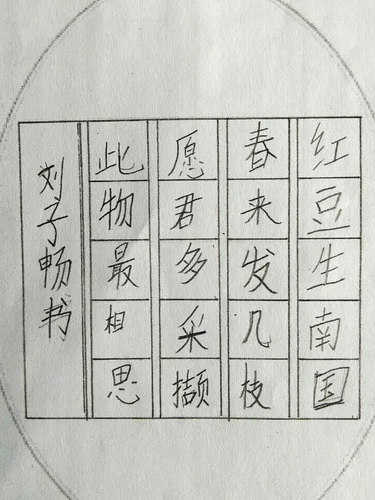 红豆生南国
春来发几枝
愿君多采撷
此物最相思
刘子畅书